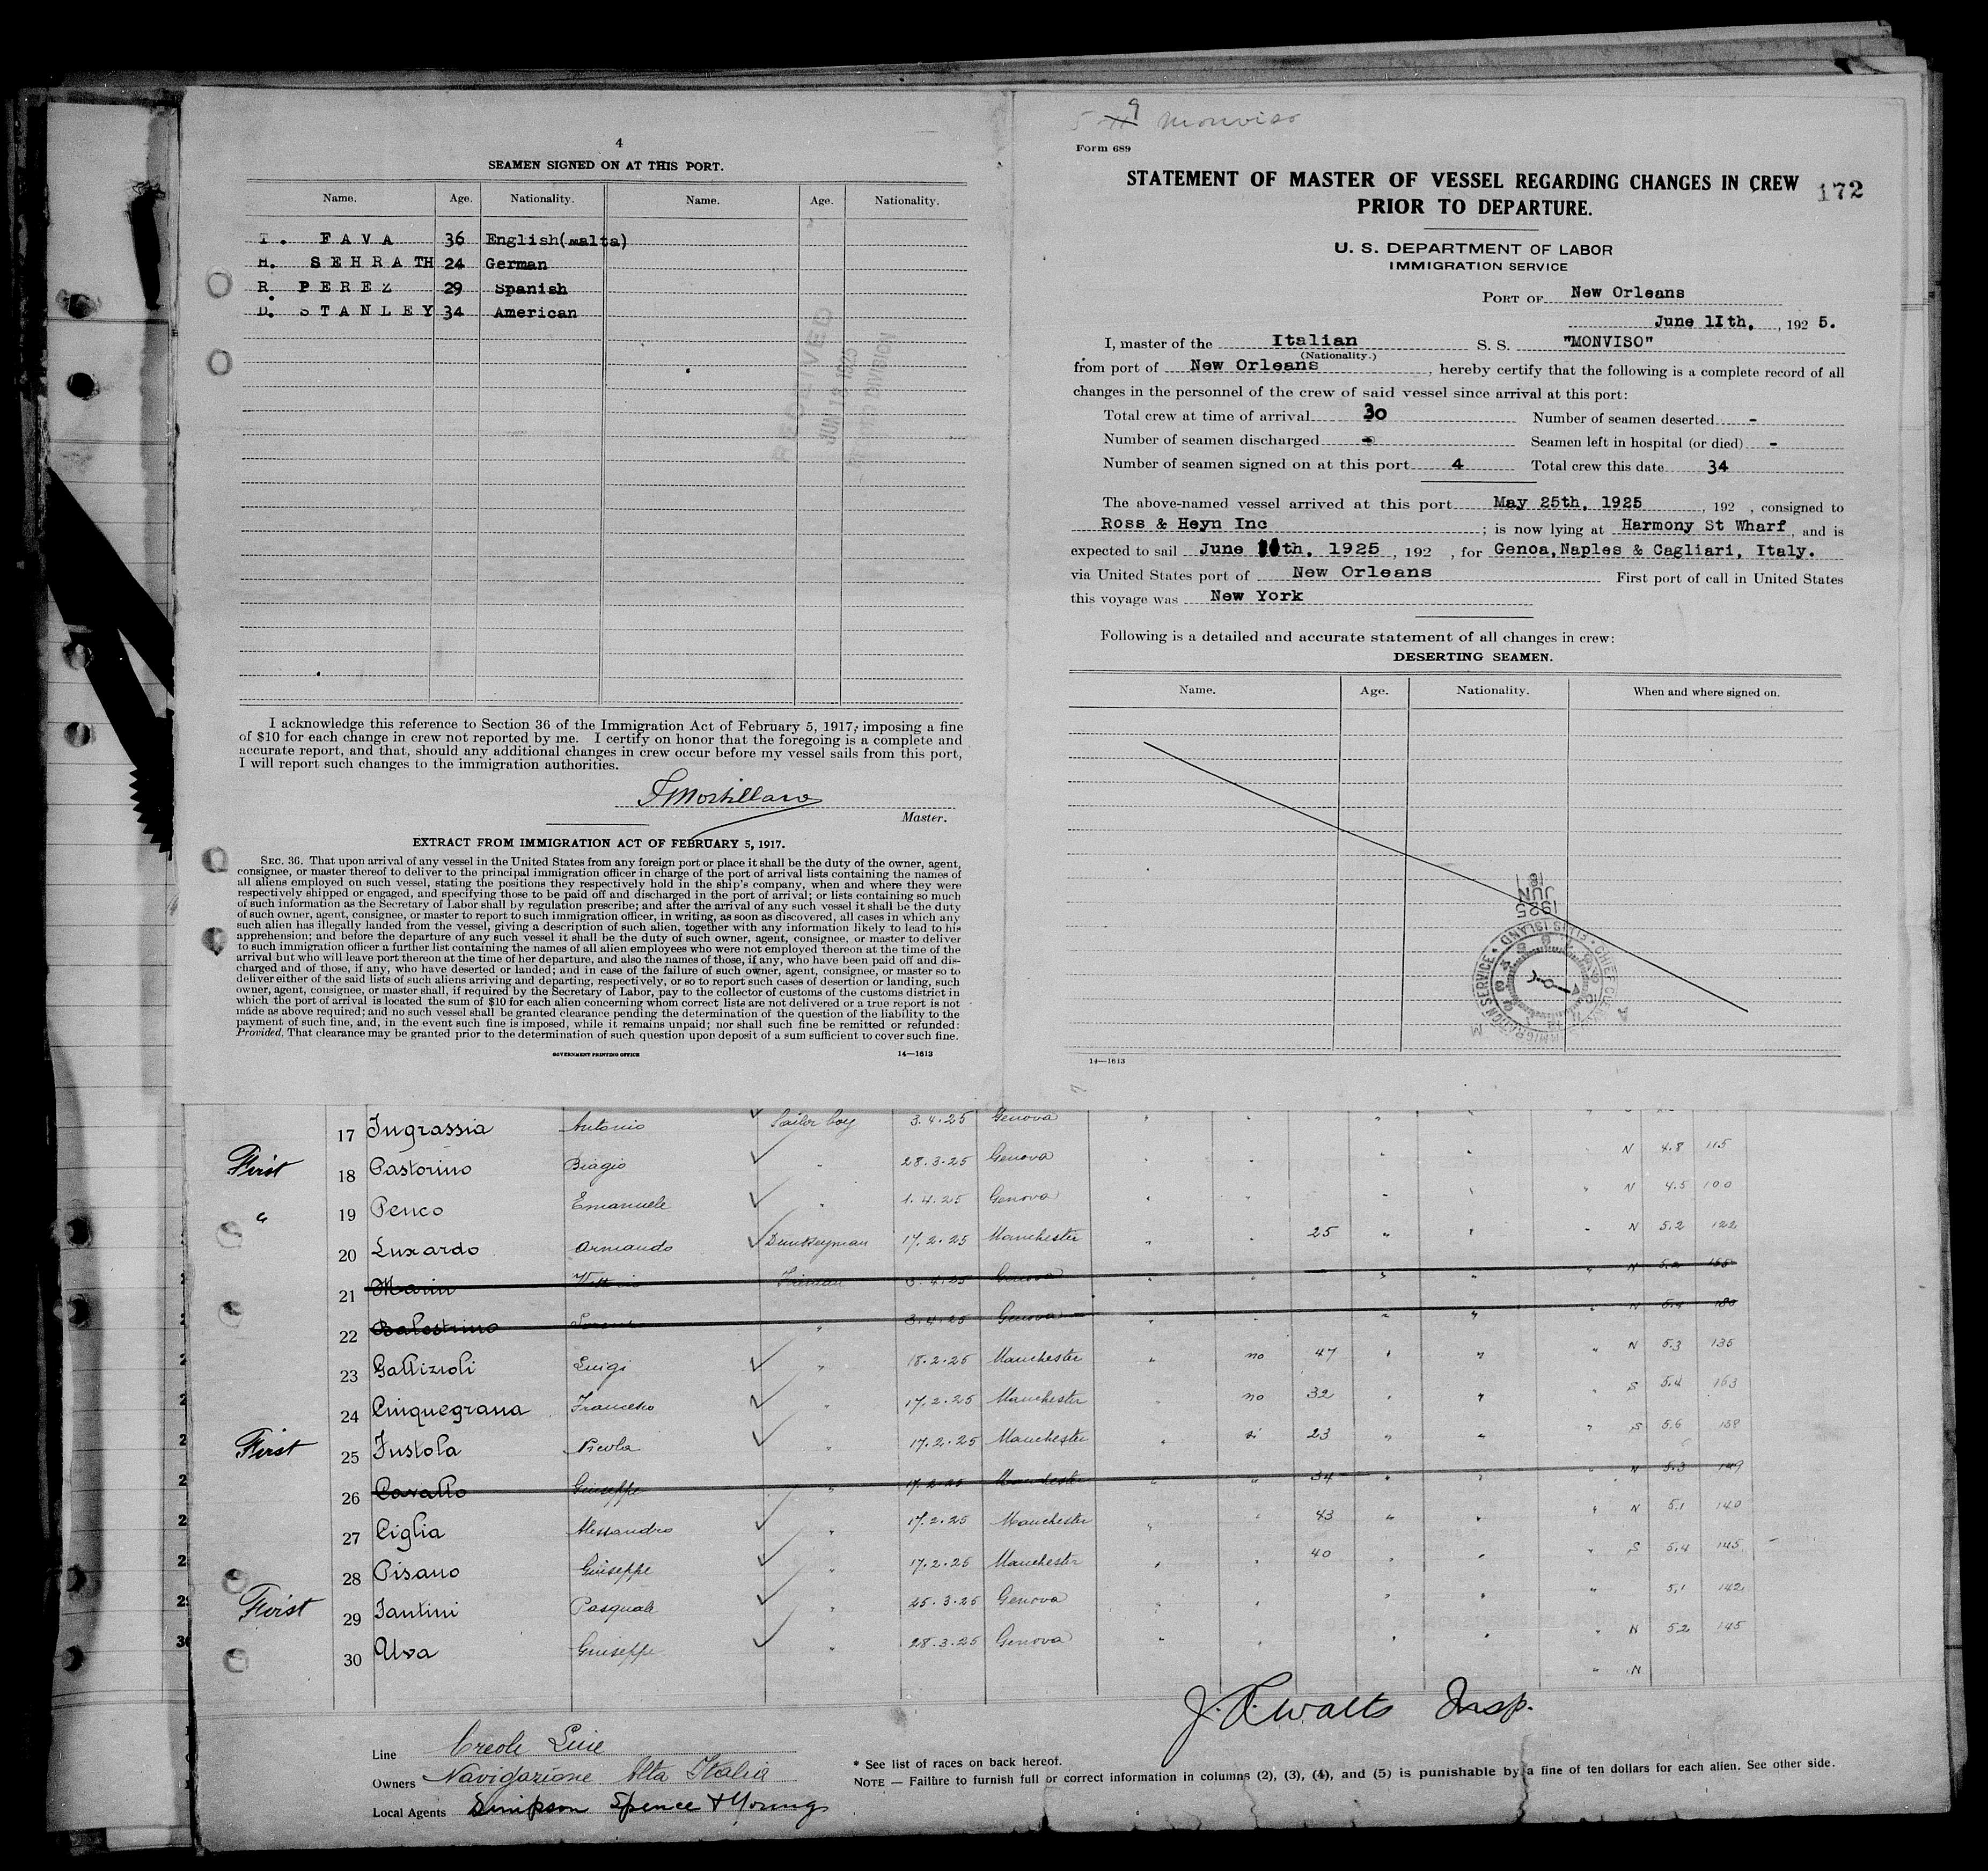 4
SEAMEN SIGNED ON AT THIS PORT.
Name. Age. Nationality. Name. Age. Nationality.
T. FAVA 36 English(malta)
H. SEHRATH 24 German
R. PEREZ 29 Spanish
D. STANLEY 34 American
RECEIVED
JUN 1925
DIVISION
I acknowledge this reference to Section 36 of the Immigration Act of February 5, 1917, imposing a fine
of $10 for each change in crew not reported by me. I certify on honor that the foregoing is a complete and
accurate report, and that, should any additional changes in crew occur before my vessel sails from this port,
I will report such changes to the immigration authorities.
Master.
EXTRACT FROM IMMIGRATION ACT OF FEBRUARY 5, 1917.
SEC. 36. That upon arrival of any vessel in the United States from any foreign port or place it shall be the duty of the owner, agent,
consignee, or master thereof to deliver to the principal immigration officer in charge of the port of arrival lists containing the names of
all aliens employed on such vessel, stating the positions they respectively hold in the ship's company, when and where they were
respectively shipped or engaged, and specifying those to be paid off and discharged in the port of arrival; or lists containing so much
of such information as the Secretary of Labor shall by regulation prescribe; and after the arrival of any such vessel it shall be the duty
of such owner, agent, consignee, or master to report to such immigration officer, in writing, as soon as discovered, all cases in which any
such alien has illegally landed from the vessel, giving a description of such alien, together with any information likely to lead to his
apprehension; and before the departure of any such vessel it shall be the duty of such owner, agent, consignee, or master to deliver
to such immigration officer a further list containing the names of all alien employees who were not employed thereon at the time of the
arrival but who will leave port thereon at the time of her departure, and also the names of those, if any, who have been paid off and dis-
charged and of those, if any, who have deserted or landed; and in case of the failure of such owner, agent, consignee, or master so to
deliver either of the said lists of such aliens arriving and departing, respectively, or so to report such cases of desertion or landing, such
owner, agent, consignee, or master shall, if required by the Secretary of Labor, pay to the collector of customs of the customs district in
which the port of arrival is located the sum of $10 for each alien concerning whom correct lists are not delivered or a true report is not
made as above required; and no such vessel shall be granted clearance pending the determination of the question of the liability to the
payment of such fine, and, in the event such fine is imposed, while it remains unpaid; nor shall such fine be remitted or refunded:
Provided, That clearance may be granted prior to the determination of such question upon deposit of a sum sufficient to cover such fine.
GOVERNMENT PRINTING OFFICE 14—1613
Monviso
Form 689
STATEMENT OF MASTER OF VESSEL REGARDING CHANGES IN CREW
172
PRIOR TO DEPARTURE.
U. S. DEPARTMENT OF LABOR
IMMIGRATION SERVICE
PORT OF New Orleans
June 11th, , 192 5.
I, master of the Italian S. S. "MONVISO"
(Nationality.)
from port of New Orleans, hereby certify that the following is a complete record of all
changes in the personnel of the crew of said vessel since arrival at this port:
Total crew at time of arrival 30 Number of seamen deserted -
Number of seamen discharged - Seamen left in hospital (or died) -
Number of seamen signed on at this port 4 Total crew this date 34
The above-named vessel arrived at this port May 25th, 1925, 192 , consigned to
Ross & Heyn Inc ; is now lying at Harmony St Wharf, and is
expected to sail June th, 1925, 192 , for Genoa,Naples & Cagliari, Italy.
via United States port of New Orleans First port of call in United States
this voyage was New York
Following is a detailed and accurate statement of all changes in crew:
DESERTING SEAMEN.
Name. Age. Nationality. When and where signed on.
JUN
1925
IMMIGRATION SERVICE • ELLIS ISLAND • CHIEF CLERK
14—1613
17 Ingrassia Antonio Sailor boy 3.4.25 Genova
First 18 Pastorino Biagio 28.3.25 Genova N 4.8 115
" 19 Penco Emanuele 1.4.25 Genova N 4.5 100
20 Luxardo Armando Dunkeyman 17.2.25 Manchester 25 N 5.2 122
21 Marin Fireman 3.4.25 Genova N
22 Balestrino 3.4.25 Genova N 180
23 Gallizioli Luigi 18.2.25 Manchester no 47 N 5.3 135
24 Cinquegrana Francesco 17.2.25 Manchester no 32 S 5.4 163
First 25 Fustola Nicola 17.2.25 Manchester si 23 S 5.6 158
26 Cavallo Giuseppe 17.2.25 Manchester 34 N 5.3 149
27 Ciglia Alessandro 17.2.25 Manchester 43 N 5.1 140
28 Pisano Giuseppe 17.2.25 Manchester 40 S 5.4 145
First 29 Iantini Pasquale 25.3.25 Genova 5.1 142
30 Uva Giuseppe 28.3.25 Genova N 5.2 145
N
Line Creole Line
Owners Navigazione Alta Italia
Local Agents Simpson Spence & Young
J. Walts Insp.
* See list of races on back hereof.
NOTE — Failure to furnish full or correct information in columns (2), (3), (4), and (5) is punishable by a fine of ten dollars for each alien. See other side.